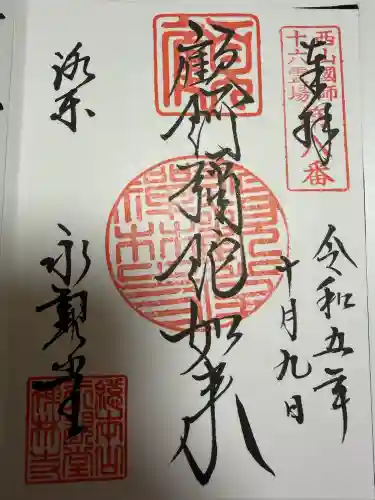 奉拝
西山國師
十六霊場
第八番
令和五年
十月九日
顧阿彌陀如来
洛東
永観堂